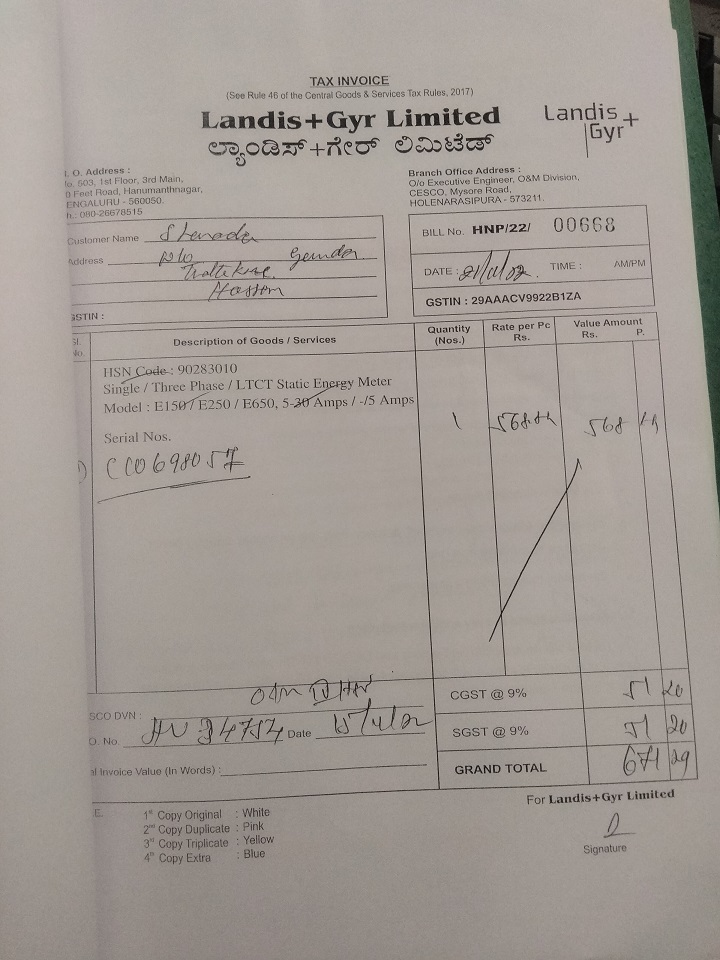 TAX INVOICE
(See Rule 46 of the Central Goods & Services Tax Rules, 2017)
Landis+Gyr Limited
ಲ್ಯಾಂಡಿಸ್+ಗೇರ್ ಲಿಮಿಟೆಡ್
Landis+
Gyr
. O. Address :
o. 503, 1st Floor, 3rd Main,
0 Feet Road, Hanumanthnagar,
ENGALURU - 560050.
h.: 080-26678515
Branch Office Address :
O/o Executive Engineer, O&M Division,
CESCO, Mysore Road,
HOLENARASIPURA - 573211.
Customer Name
Address
Hassan
GSTIN :
BILL No. HNP/22/ 00668
DATE : TIME : AM/PM
GSTIN : 29AAACV9922B1ZA
Sl. No. Description of Goods / Services Quantity (Nos.) Rate per Pc Rs. Value Amount Rs. P.
HSN Code : 90283010
Single / Three Phase / LTCT Static Energy Meter
Model : E150 / E250 / E650, 5-30 Amps / -/5 Amps
1 568 568
Serial Nos.
CGST @ 9% 51 20
SCO DVN :
O. No. Date
SGST @ 9% 51 20
l Invoice Value (In Words) :
GRAND TOTAL 671 29
E. 1st Copy Original : White
2nd Copy Duplicate : Pink
3rd Copy Triplicate : Yellow
4th Copy Extra : Blue
For Landis+Gyr Limited
Signature